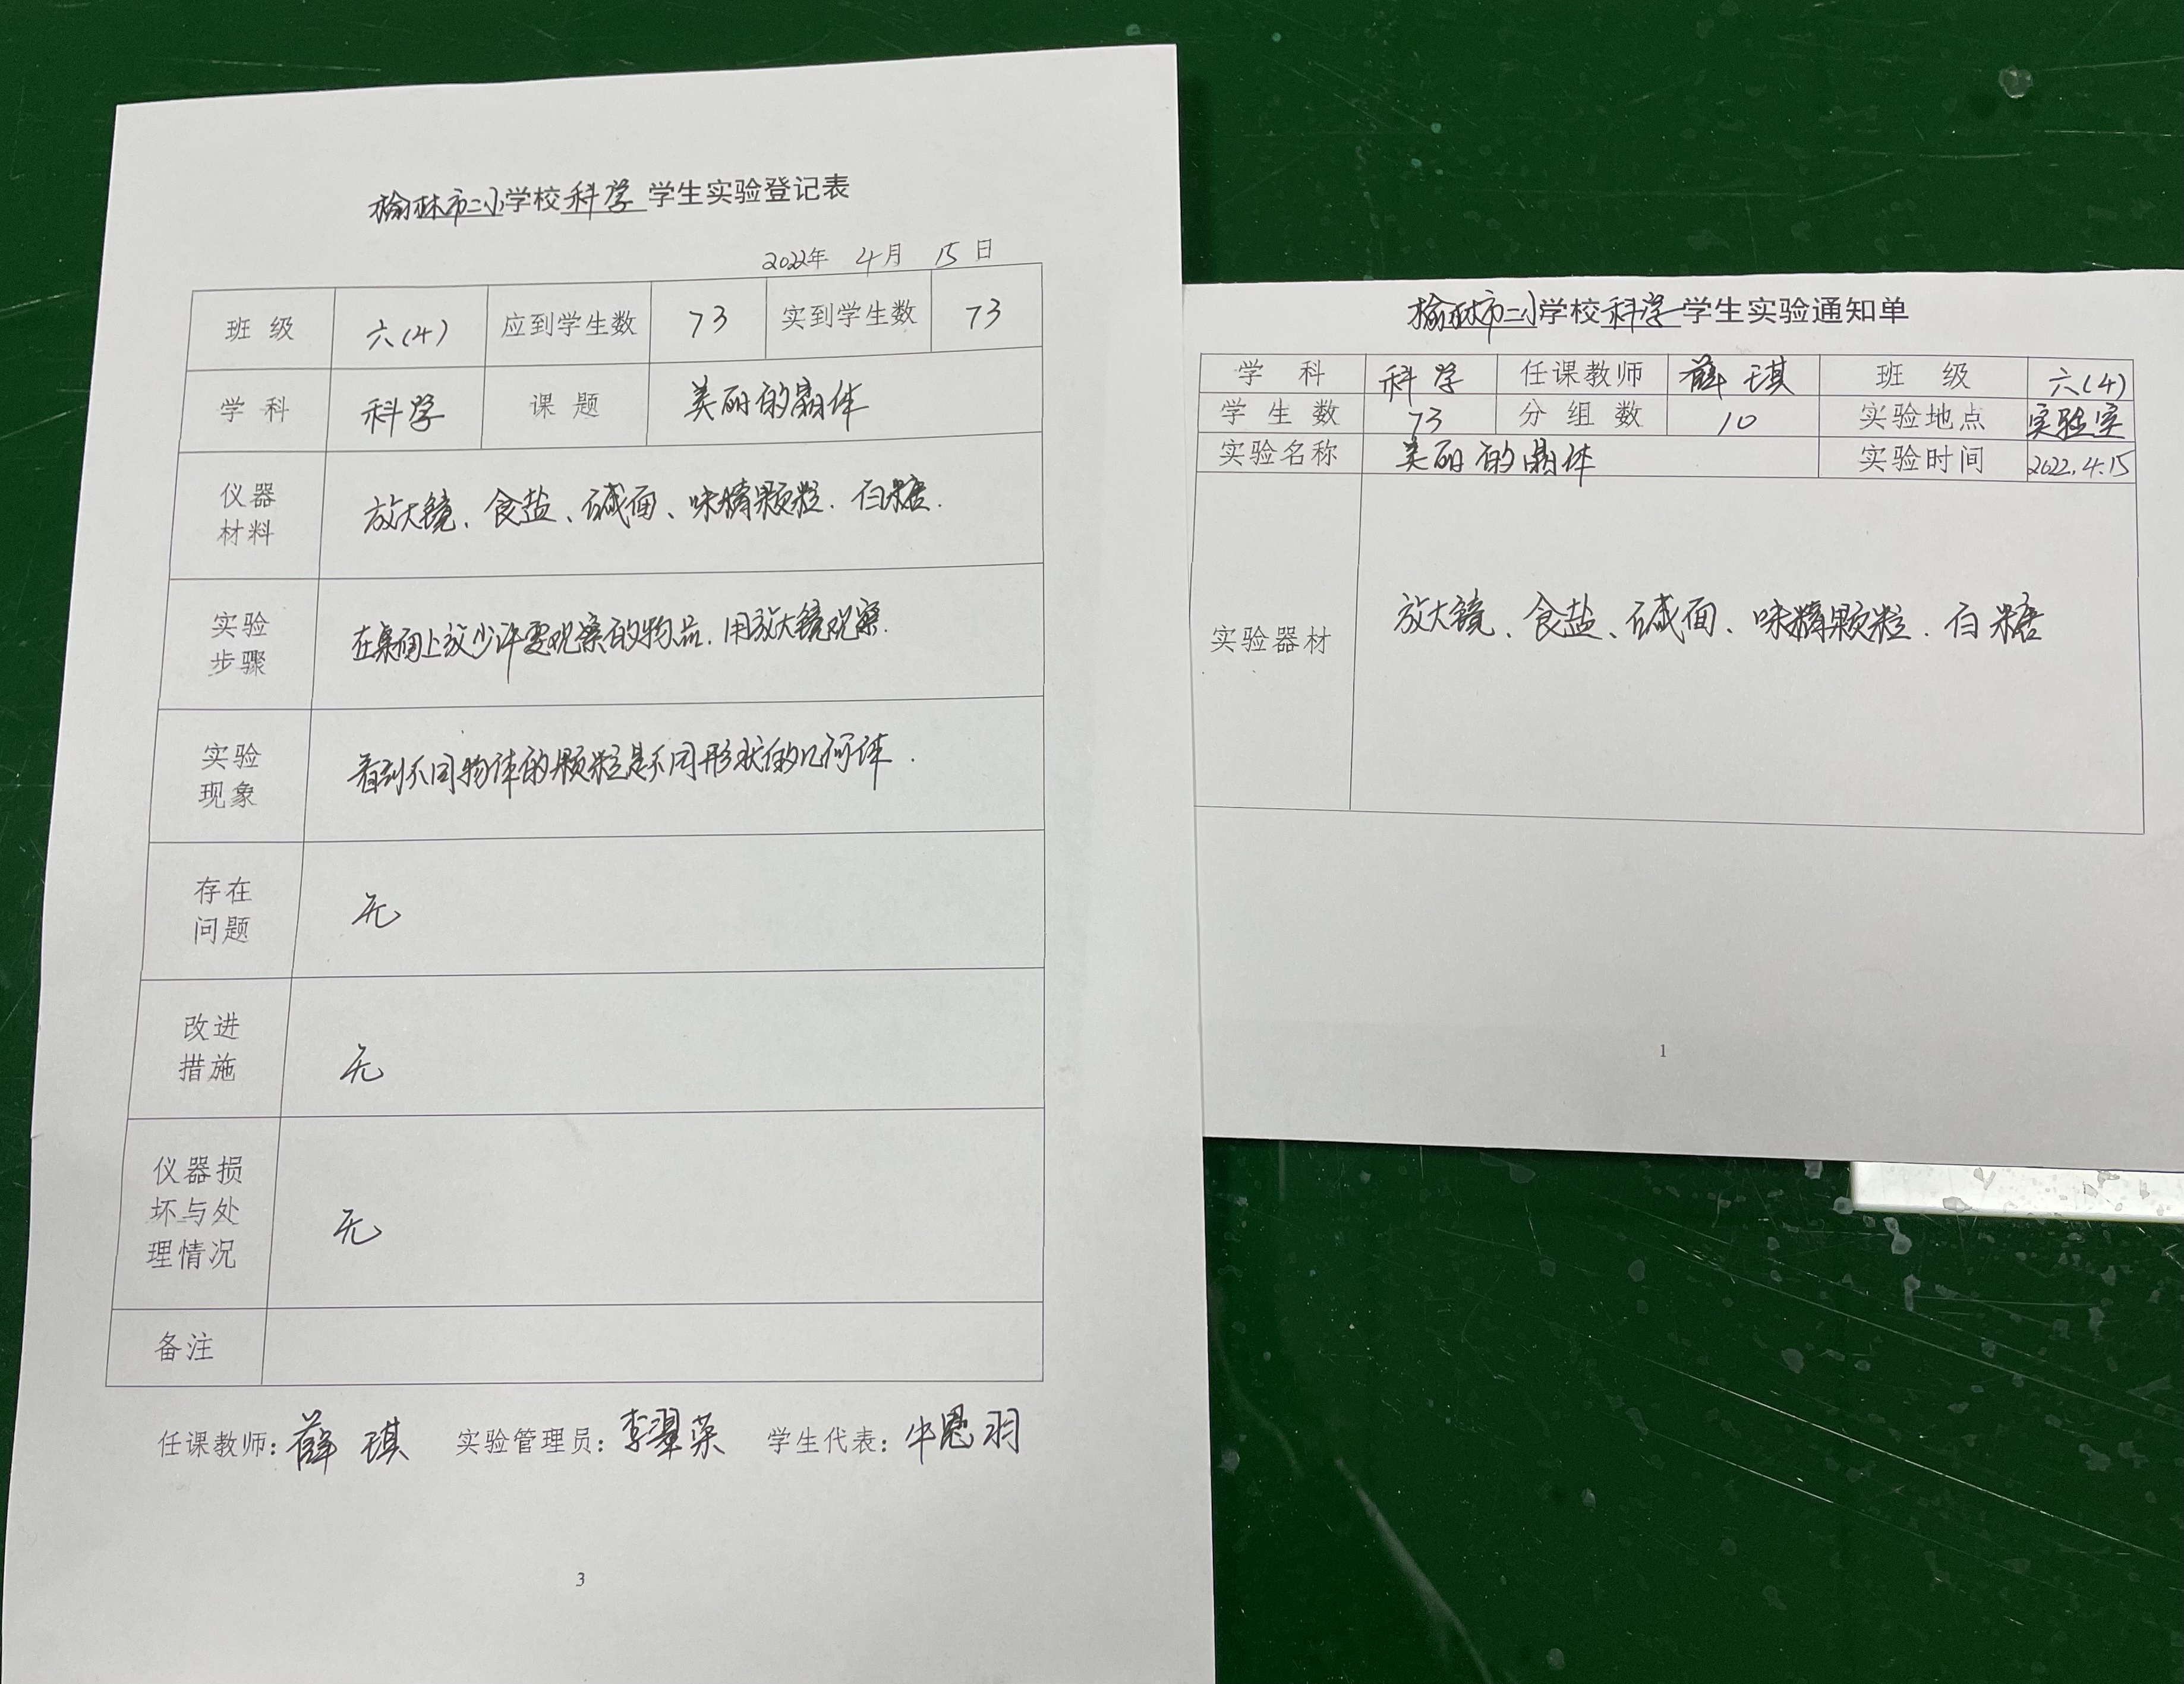 榆林市二小学校科学 学生实验登记表
2022年 4月 15日
班 级 六(4) 应到学生数 73 实到学生数 73
学 科 科学 课 题 美丽的晶体
仪器
材料
放大镜、食盐、碱面、味精颗粒.白糖.
实验
步骤
在桌面上放少许要观察的物品.用放大镜观察.
实验
现象
看到不同物体的颗粒是不同形状的几何体.
存在
问题
无
改进
措施
无
仪器损
坏与处
理情况
无
备注
任课教师:薛琪 实验管理员:李翠荣 学生代表:牛恩羽
3
榆林市二小学校科学学生实验通知单
学 科 科学 任课教师 薛琪 班 级 六(4)
学 生 数 73 分 组 数 10 实验地点 实验室
实验名称 美丽的晶体 实验时间 2022.4.15
实验器材 放大镜、食盐、碱面、味精颗粒.白糖
1